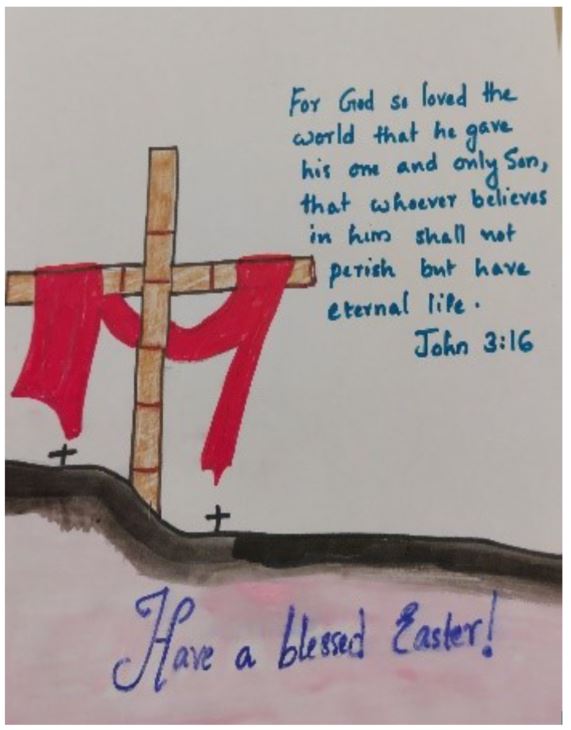 For God so loved the
world that he gave
his one and only Son,
that whoever believes
in him shall not
perish but have
eternal life.
John 3:16
Have a blessed Easter!